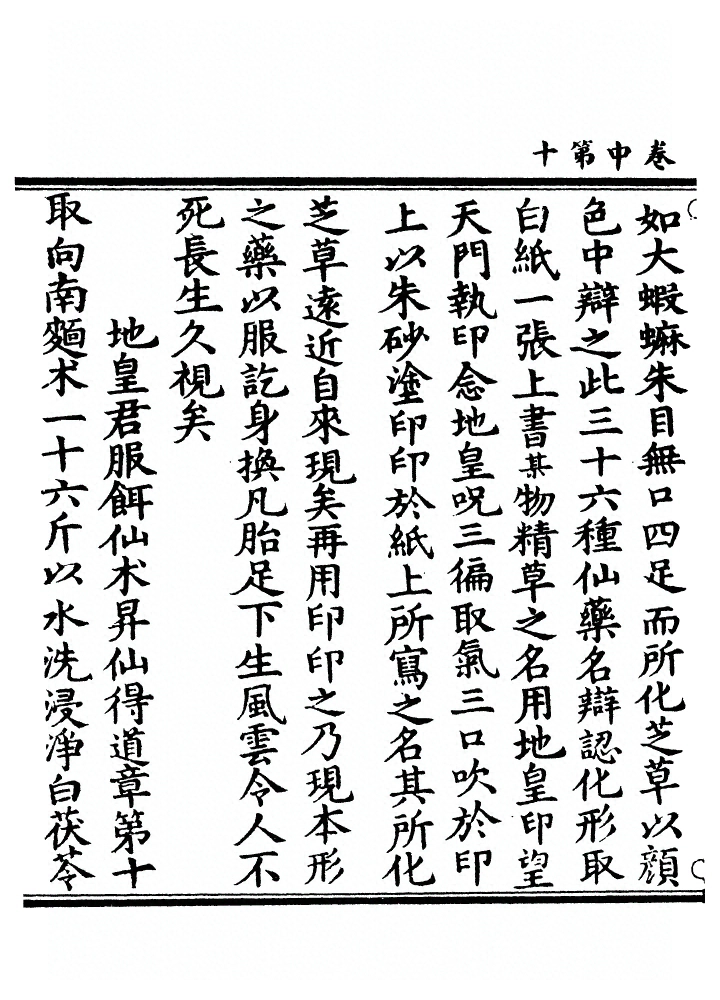 卷中第十
如大蝦蟆朱目無口四足而所化芝草以顏
色中辯之此三十六種仙藥名辯認化形取
白紙一張上書某物精草之名用地皇印望
天門執印念地皇呪三徧取氣三口吹於印
上以朱砂塗印印於紙上所寫之名其所化
芝草遠近自來現矣再用印印之乃現本形
之藥以服訖身換凡胎足下生風雲令人不
死長生久視矣
地皇君服餌仙朮昇仙得道章第十
取向南麵朮一十六斤以水洗浸淨白茯苓